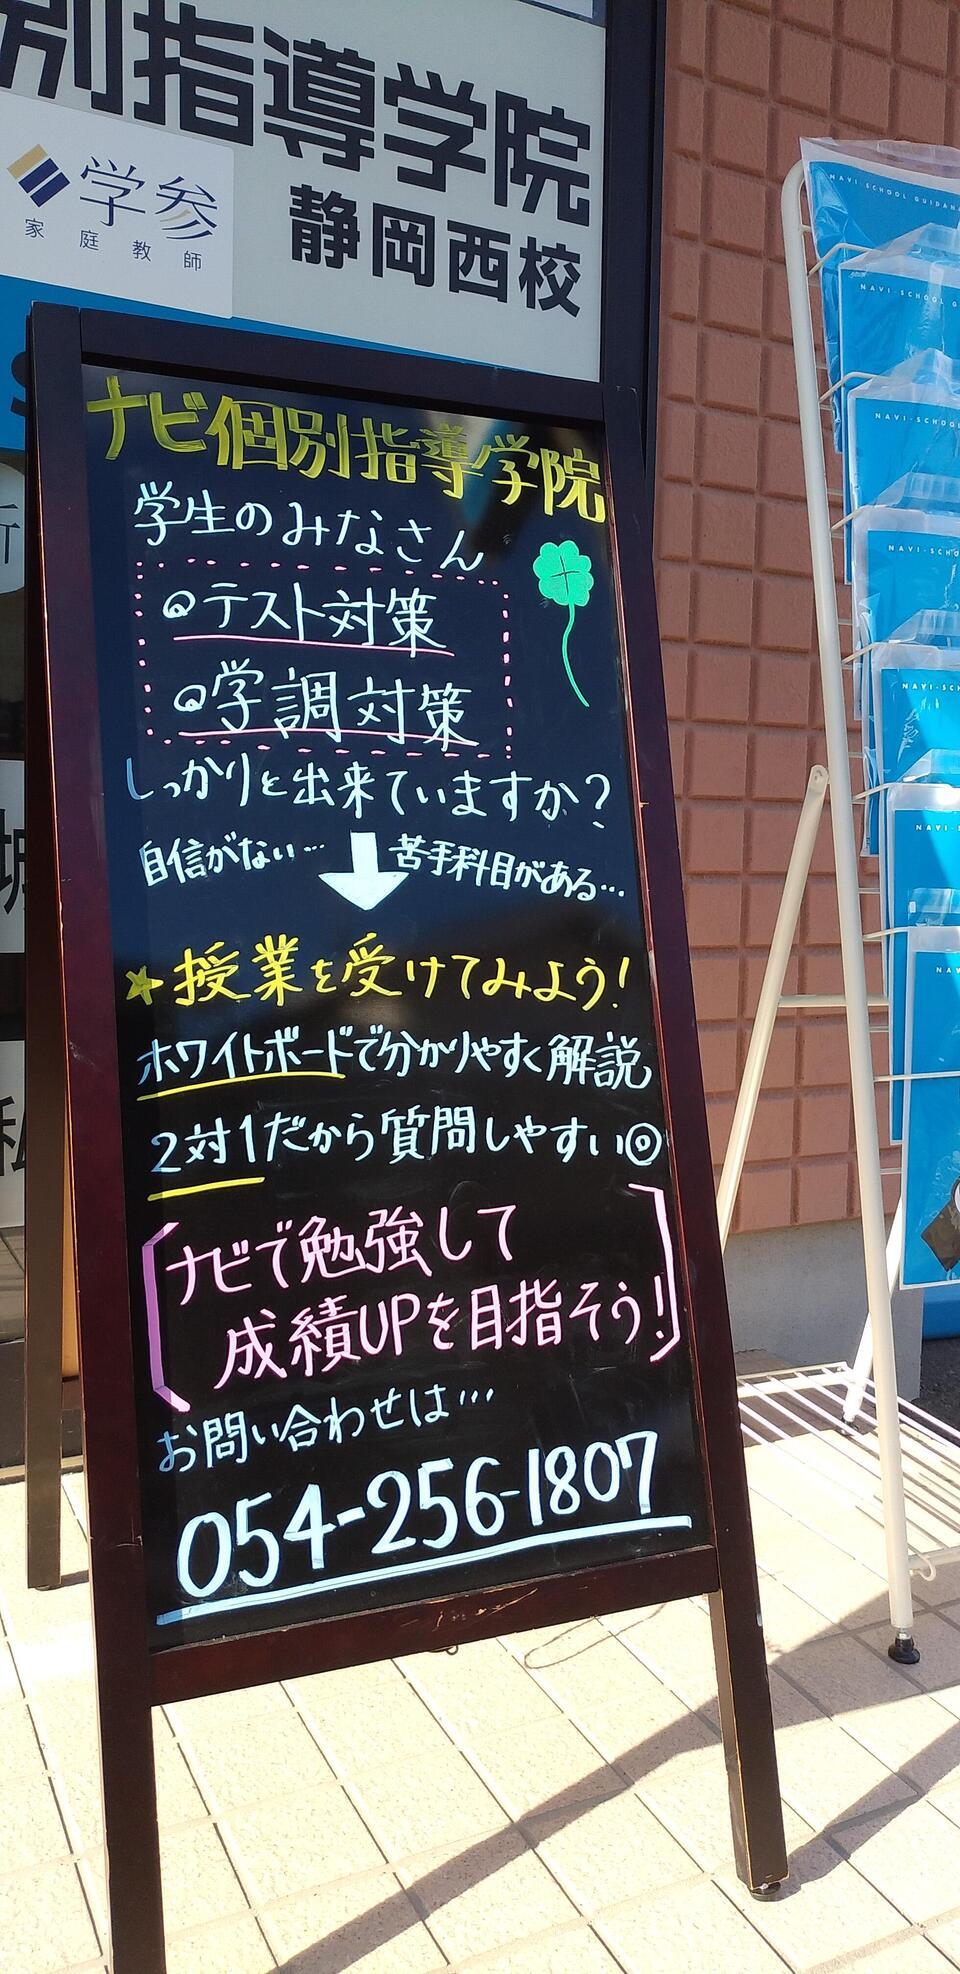 別指導学院
学参
家庭教師
静岡西校
ナビ個別指導学院
学生のみなさん
テスト対策
学調対策
しっかりと出来ていますか?
自信がない… 苦手科目がある…
授業を受けてみよう!
ホワイトボードで分かりやすく解説
2対1だから質問しやすい◎
ナビで勉強して
成績UPを目指そう!
お問い合わせは…
054-256-1807
NAVI-SCHOOL GUIDAN
NAVI-SCHOOL G
NAVI-SCHOOL
NAVI-SCHO
NAVI-SCH
NAVI-S
NAV